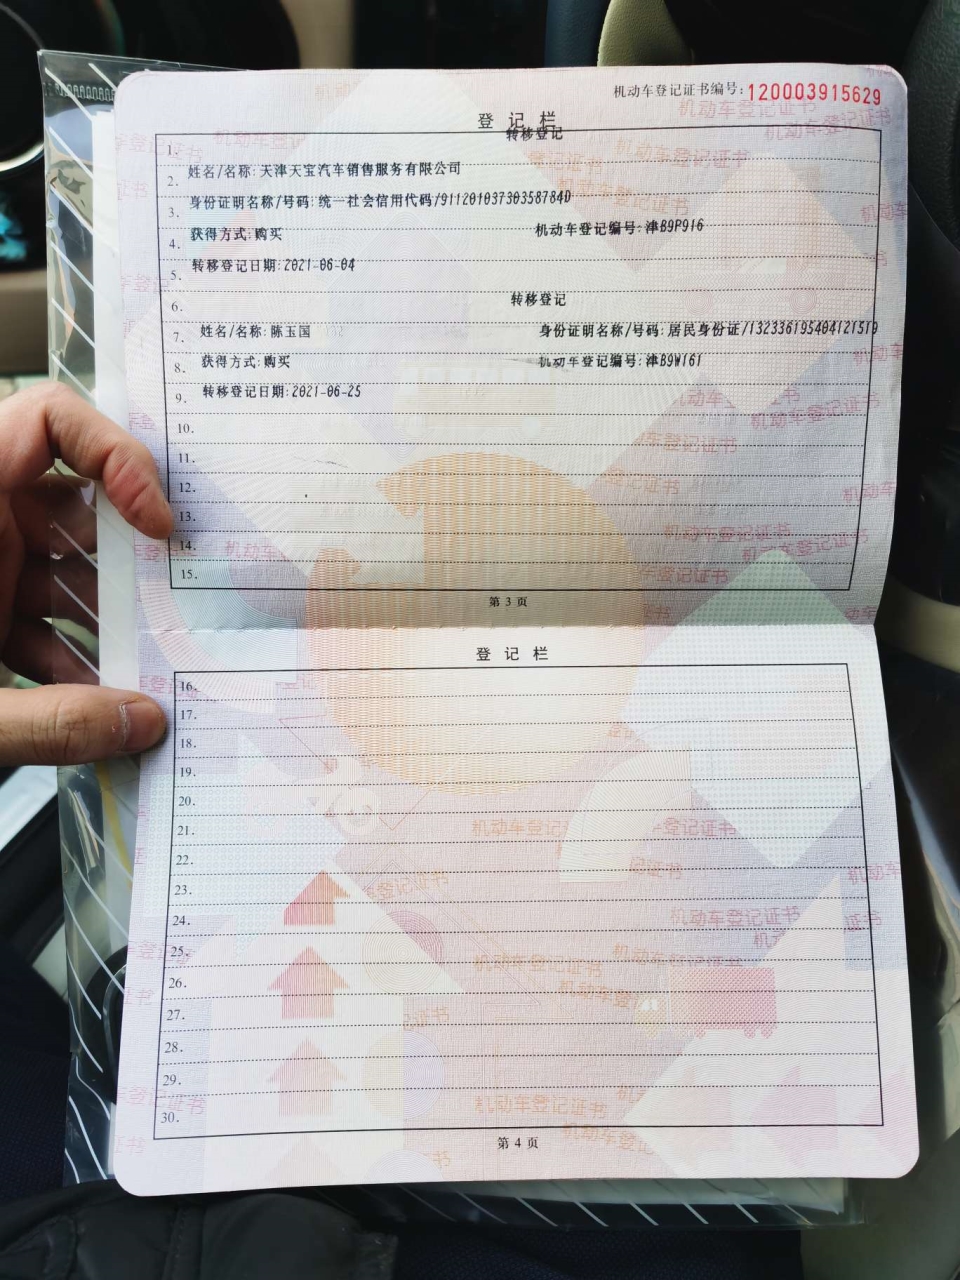 机动车登记证书编号:120003915629
登 记 栏
转移登记
1.
2. 姓名/名称:天津天宝汽车销售服务有限公司
3. 身份证明名称/号码:统一社会信用代码/91120103730358784D
4. 获得方式:购买 机动车登记编号:津B9P916
5. 转移登记日期:2021-06-04
6. 转移登记
7. 姓名/名称:陈玉国 身份证明名称/号码:居民身份证/132336195404121519
8. 获得方式:购买 机动车登记编号:津B9W161
9. 转移登记日期:2021-06-25
10.
11.
12.
13.
14.
15.
第 3 页
登 记 栏
16.
17.
18.
19.
20.
21.
22.
23.
24.
25.
26.
27.
28.
29.
30.
第 4 页